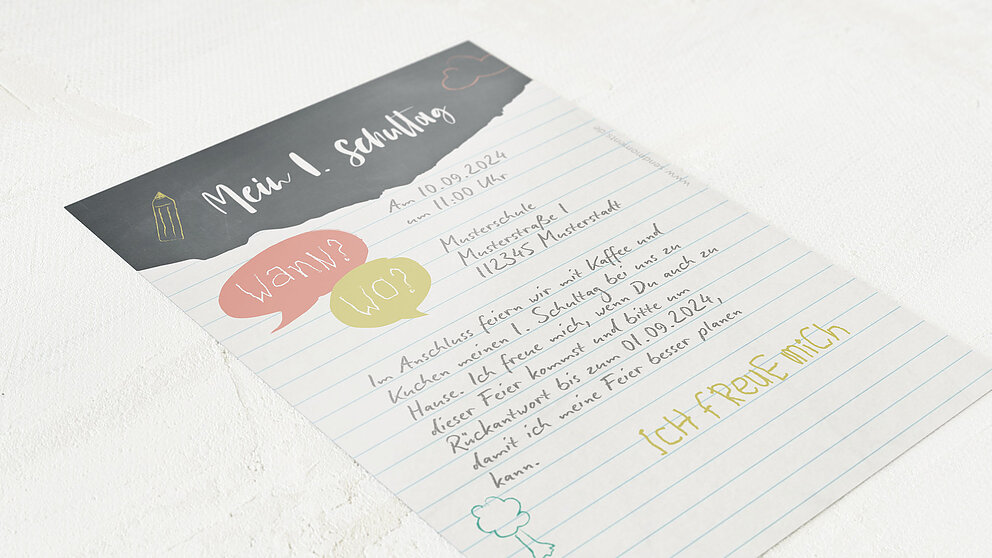 Mein 1. Schultag
Am 10.09.2024
um 11.00 Uhr
Wann?
Wo?
Musterschule
Musterstraße 1
112345 Musterstadt
Im Anschluss feiern wir mit Kaffee und
Kuchen meinen 1. Schultag bei uns zu
Hause. Ich freue mich, wenn Du auch zu
dieser Feier kommst und bitte um
Rückantwort bis zum 01.09.2024,
damit ich meine Feier besser planen
kann.
ICH fREUE MiCh